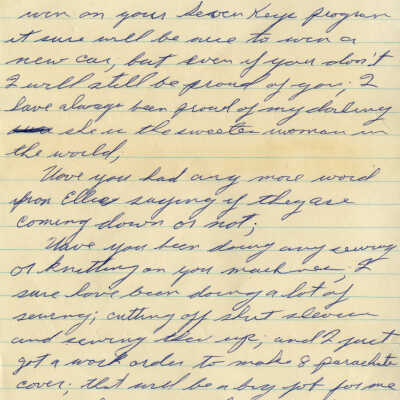 win on your Seven Keys program
it sure will be nice to win a
new car, but even if you don't
I will still be proud of you; I
have always been proud of my darling
she is the sweetes woman in
the world;
Have you had any more word
from Ellies saying if they are
coming down or not;
Have you been doing any sewing
or knitting on you machines; I
sure have been doing a lot of
sewing; cutting off shirt sleeves
and sewing them up; and I just
got a work order to make 8 parachute
cover; that will be a big job for me